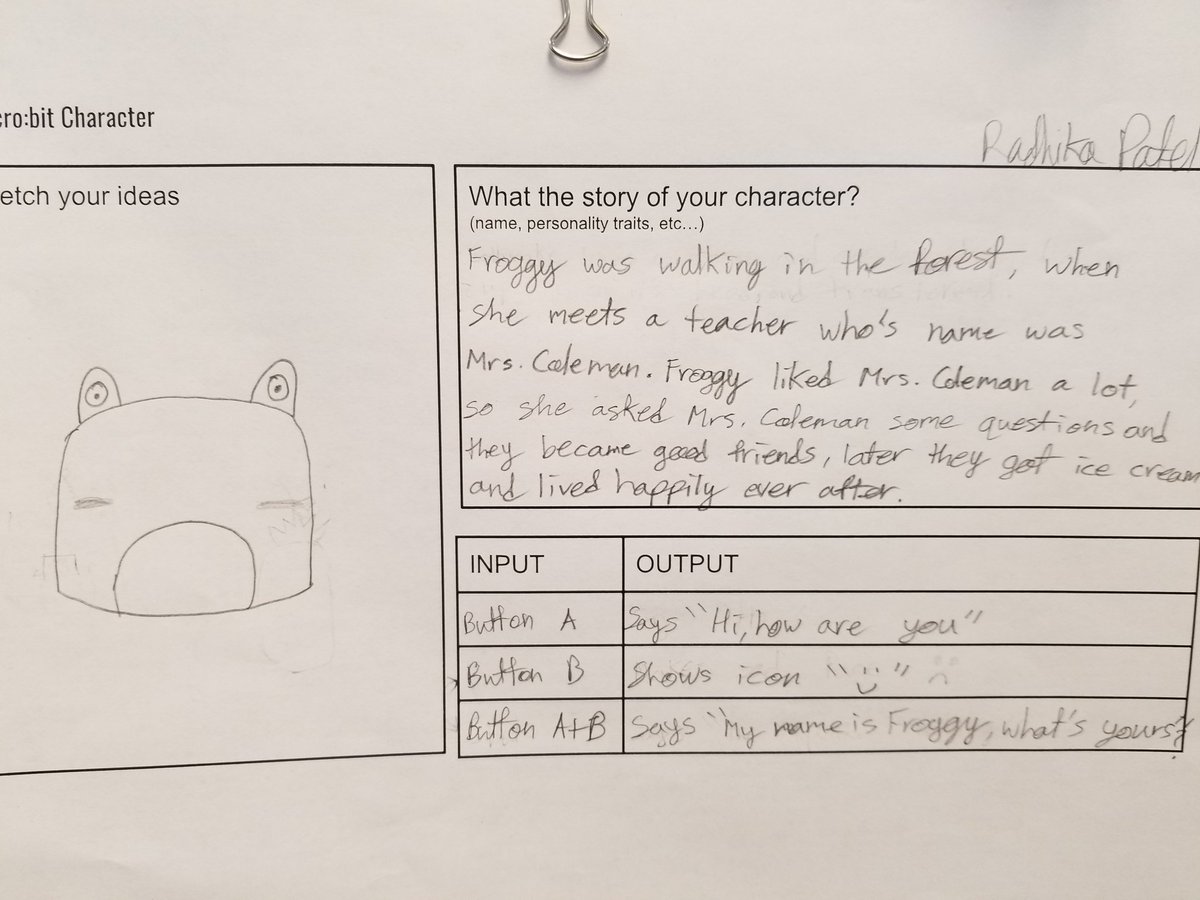 cro:bit Character
Radhika Patel
etch your ideas
What the story of your character?
(name, personality traits, etc...)
Froggy was walking in the forest, when
she meets a teacher who's name was
Mrs. Coleman. Froggy liked Mrs. Coleman a lot,
so she asked Mrs. Coleman some questions and
they became good friends, later they got ice cream
and lived happily ever after.
INPUT OUTPUT
Button A Says "Hi, how are you"
Button B Shows icon " "
Button A+B Says "My name is Froggy, what's yours?